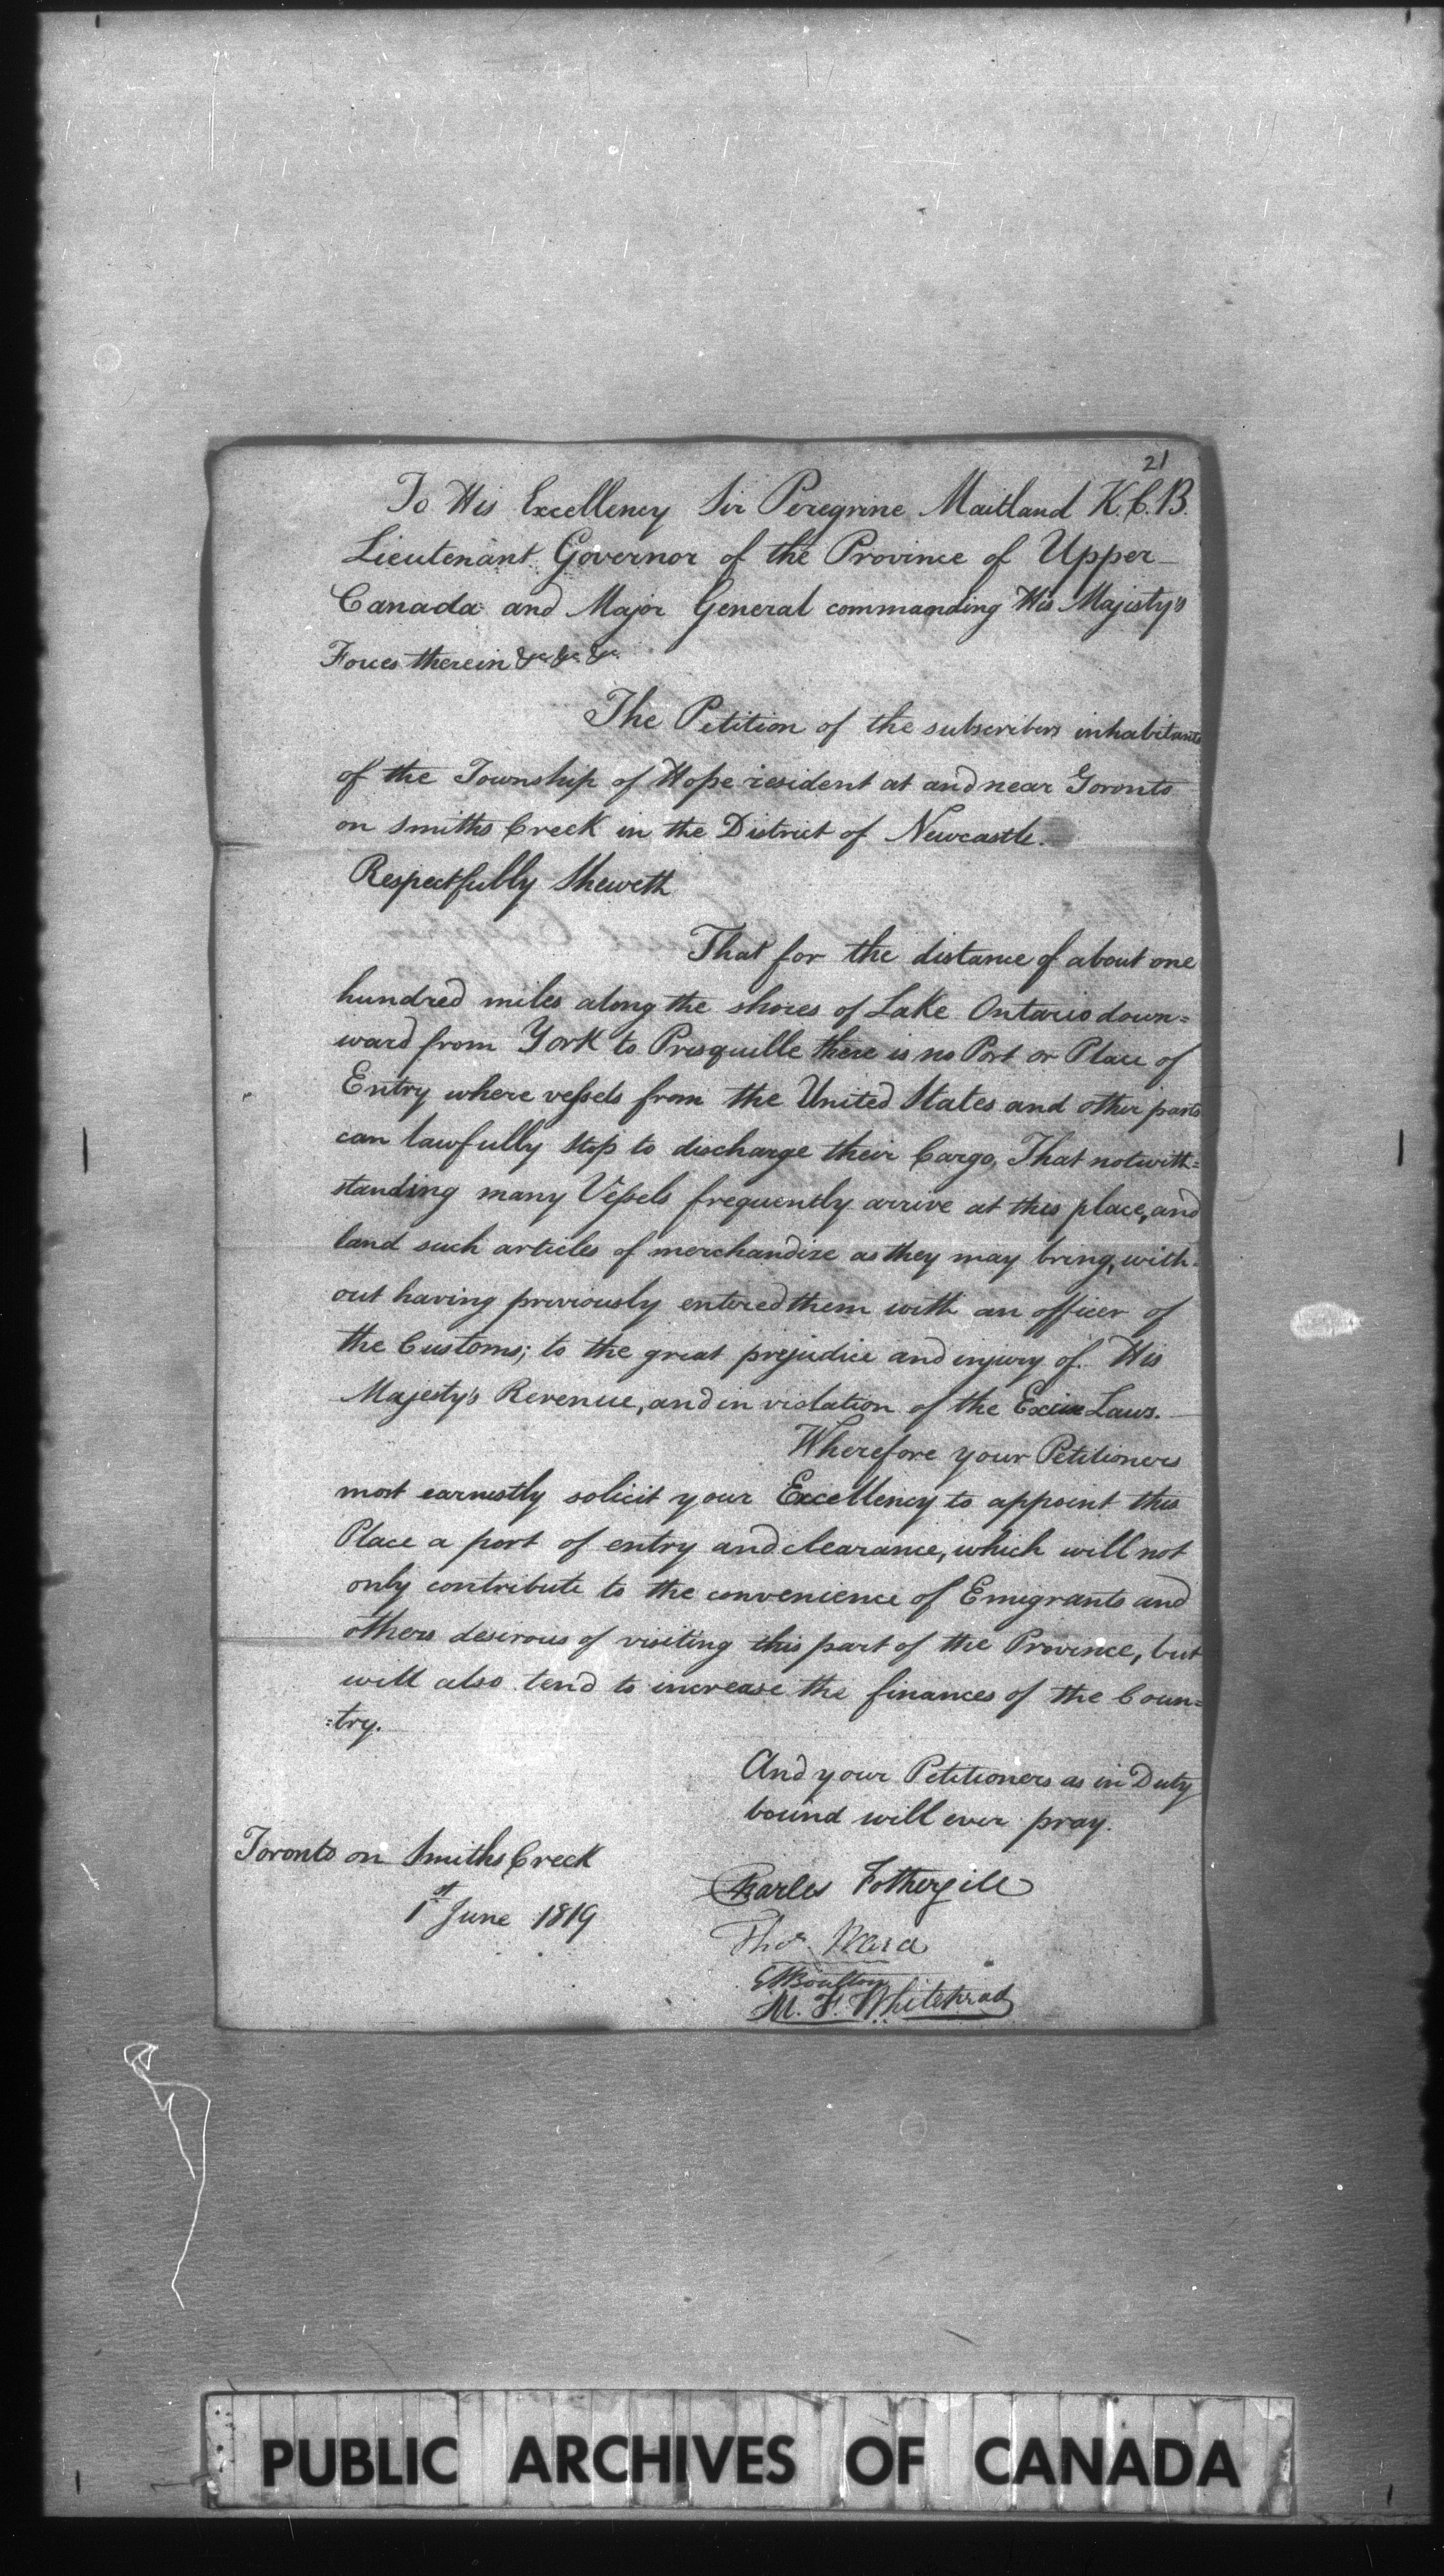 21
To His Excellency Sir Peregrine Maitland K.C.B.
Lieutenant Governor of the Province of Upper
Canada and Major General commanding His Majesty's
Forces therein &c &c &c.
The Petition of the subscribers inhabitants
of the Township of Hope resident at and near Toronto
on Smiths Creek in the District of Newcastle.
Respectfully Sheweth
That for the distance of about one
hundred miles along the shores of Lake Ontario down=
ward from York to Presquille there is no Port or Place of
Entry where vessels from the United States and other parts
can lawfully stop to discharge their Cargo, That notwith=
standing many Vessels frequently arrive at this place, and
land such articles of merchandize as they may bring, with=
out having previously entered them with an officer of
the Customs; to the great prejudice and injury of His
Majesty's Revenue, and in violation of the Excise Laws.
Wherefore your Petitioners
most earnestly solicit your Excellency to appoint this
Place a port of entry and clearance, which will not
only contribute to the convenience of Emigrants and
others desirous of visiting this part of the Province, but
will also tend to increase the finances of the Coun=
=try.
And your Petitioners as in Duty
bound will ever pray.
Toronto on Smiths Creek
1st June 1819
Charles Fothergill
Thos Ward
Boulton
M. F. Whitehead
PUBLIC ARCHIVES OF CANADA